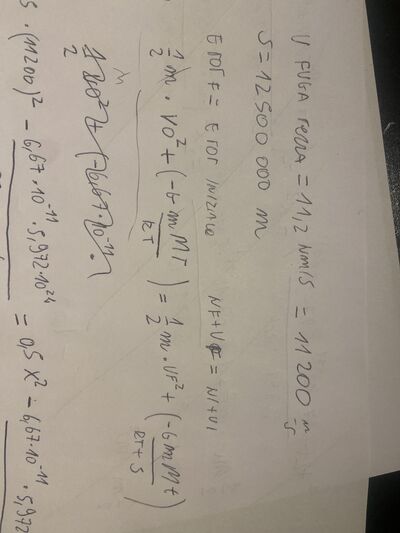 V FUGA TERRA = 11,2 Km/s = 11200 m/s
S = 12500 000 m
E TOT F = E TOT INIZIALE KF+UF = KI+UI
1/2 m · VO² + (-G mMT/RT) = 1/2 m · VF² + (-G mMt/RT+S)
1/2 VO² + (-6,67·10⁻¹¹ ·
5 · (11200)² - 6,67·10⁻¹¹ · 5,972·10²⁴ = 0,5 X² - 6,67·10⁻¹¹ · 5,972